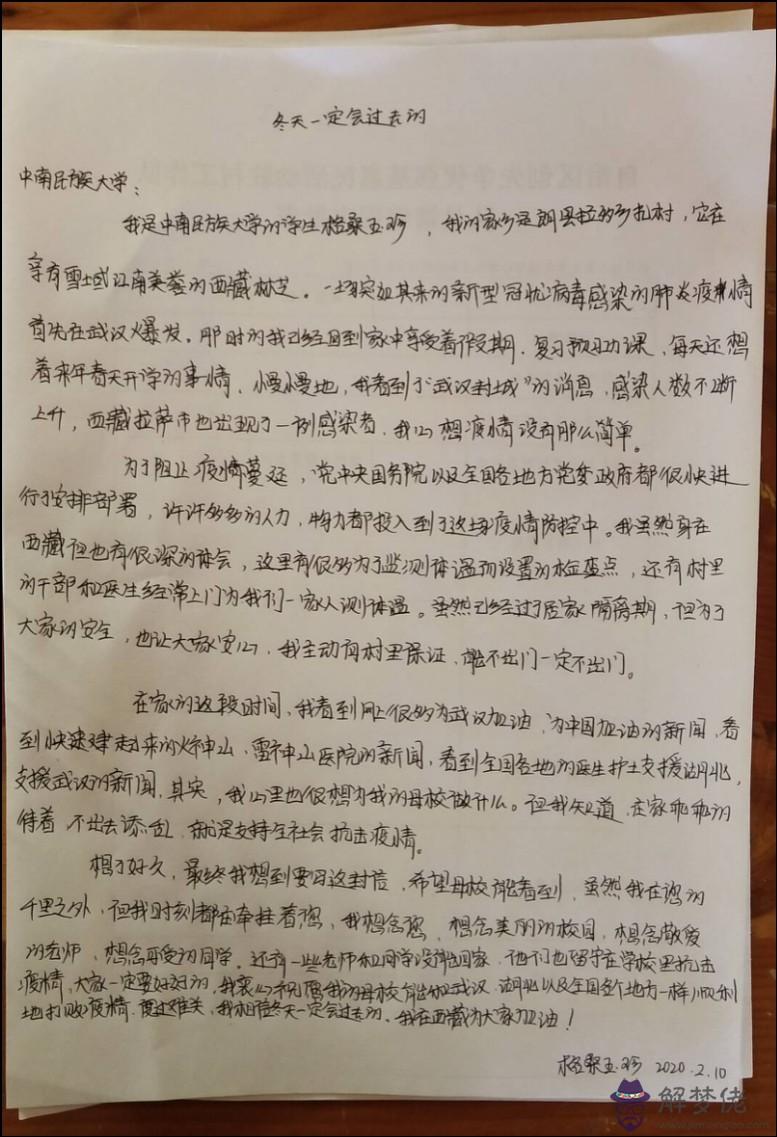 冬天一定会过去的
中南民族大学:
我是中南民族大学的学生格桑玉珍,我的家乡是朗县拉多乡扎村,它在
享有雪域江南美誉的西藏林芝。一场突如其来的新型冠状病毒感染的肺炎疫情
首先在武汉爆发。那时的我已经回到家中享受着假期,复习预习功课,每天还想
着来年春天开学的事情,慢慢地,我看到了“武汉封城”的消息,感染人数不断
上升,西藏拉萨市也出现了一例感染者,我心想疫情没有那么简单。
为了阻止疫情蔓延,党中央国务院以及全国各地方党委政府都很快进
行了安排部署,许许多多的人力,物力都投入到了这场疫情防控中。我虽然身在
西藏但也有很深的体会,这里有很多为了监测体温而设置的检查点,还有村里
的干部和医生经常上门为我们一家人测体温。虽然已经过了居家隔离期,但为了
大家的安全,也让大家安心,我主动向村里保证,能不出门一定不出门。
在家的这段时间,我看到网上很多为武汉加油,为中国加油的新闻,看
到快速建起来的火神山,雷神山医院的新闻,看到全国各地的医生护士支援湖北,
支援武汉的新闻,其实,我心里也很想为我的母校做什么。但我知道,在家乖乖的
待着 不出去添乱,就是支持全社会抗击疫情。
想了好久,最终我想到要写这封信,希望母校能看到,虽然我在您的
千里之外,但我时刻都在牵挂着您,我想念您,想念美丽的校园,想念敬爱
的老师,想念可爱的同学。还有一些老师和同学没能回家,他们也留守在学校里抗击
疫情,大家一定要好好的,我衷心祝愿我的母校能和武汉、湖北以及全国各个地方一样顺利
地打败疫情,度过难关,我相信冬天一定会过去的,我在西藏为大家加油!
格桑玉珍 2020.2.10
解梦佬